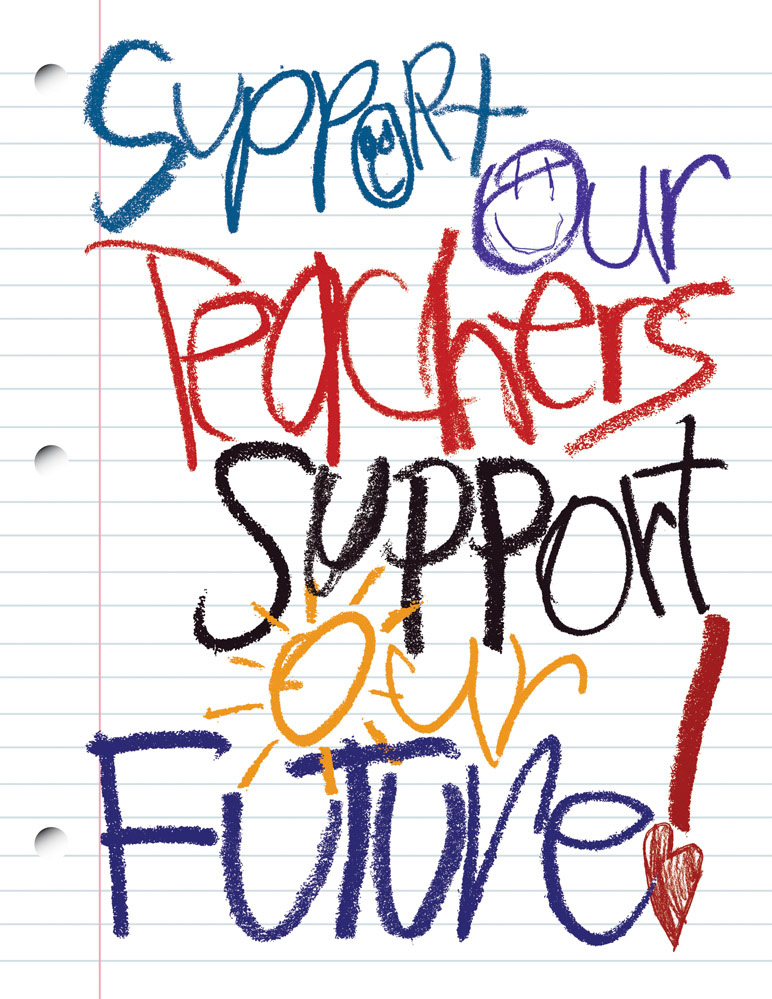 Support
Our
Teachers
Support
Our
Future!